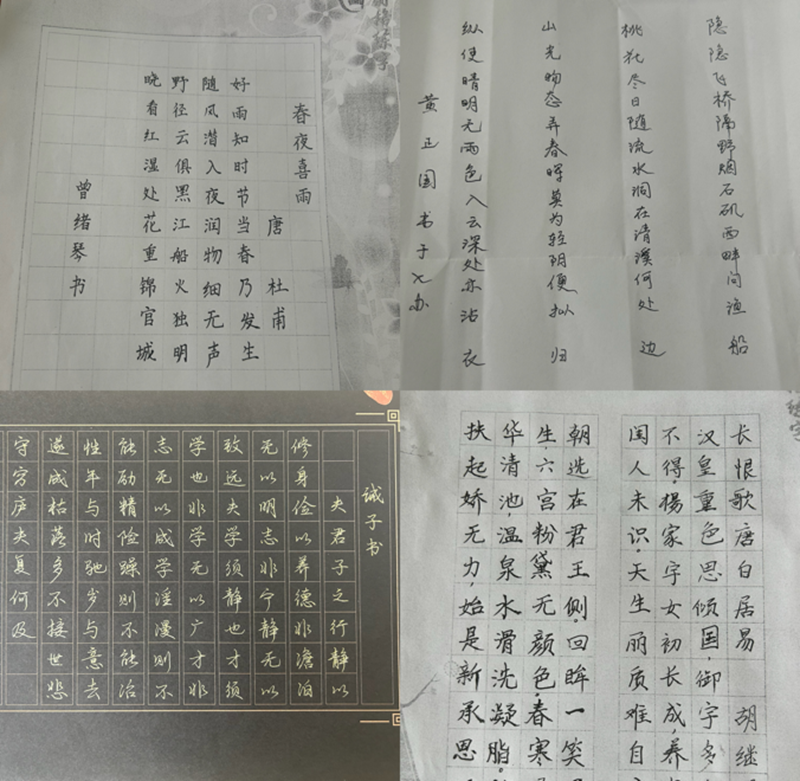 格练字
春夜喜雨
唐 杜甫
好雨知时节当春乃发生
随风潜入夜润物细无声
野径云俱黑江船火独明
晓看红湿处花重锦官城
曾绪琴书
隐隐飞桥隔野烟石矶西畔问渔船
桃花尽日随流水洞在清溪何处边
山光物态弄春晖莫为轻阴便拟归
纵使晴明无雨色入云深处亦沾衣
黄正国书于七办
诫子书
夫君子之行静以
修身俭以养德非澹泊
无以明志非宁静无以
致远夫学须静也才须
学也非学无以广才非
志无以成学淫漫则不
能励精险躁则不能冶
性年与时驰岁与意去
遂成枯落多不接世悲
守穷庐夫复何及
练字
长恨歌唐白居易 胡继
汉皇重色思倾国,御字多
不得,楊家字女初长成,养
闺人未识,天生丽质难自
朝选在君王侧回眸一笑
生,六宫粉黛无颜色,春寒
华清池,温泉水滑洗凝脂,
扶起娇无力,始是新承思